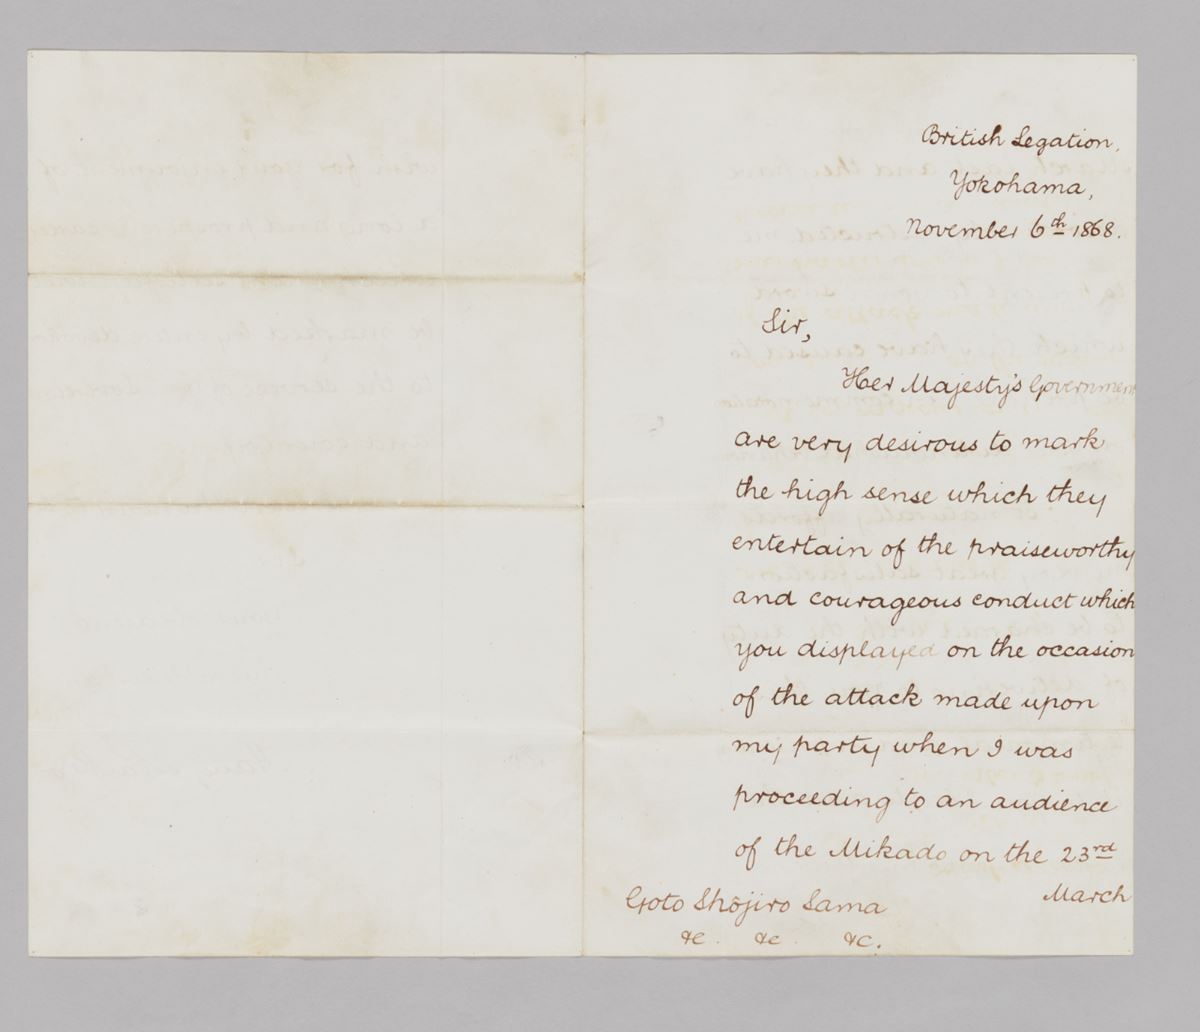 British Legation,
Yokohama,
November 6th 1868.
Sir,
Her Majesty's Government
are very desirous to mark
the high sense which they
entertain of the praiseworthy
and courageous conduct which
you displayed on the occasion
of the attack made upon
my party when I was
proceeding to an audience
of the Mikado on the 23rd
March
Goto Shôjiro Sama
&c. &c. &c.